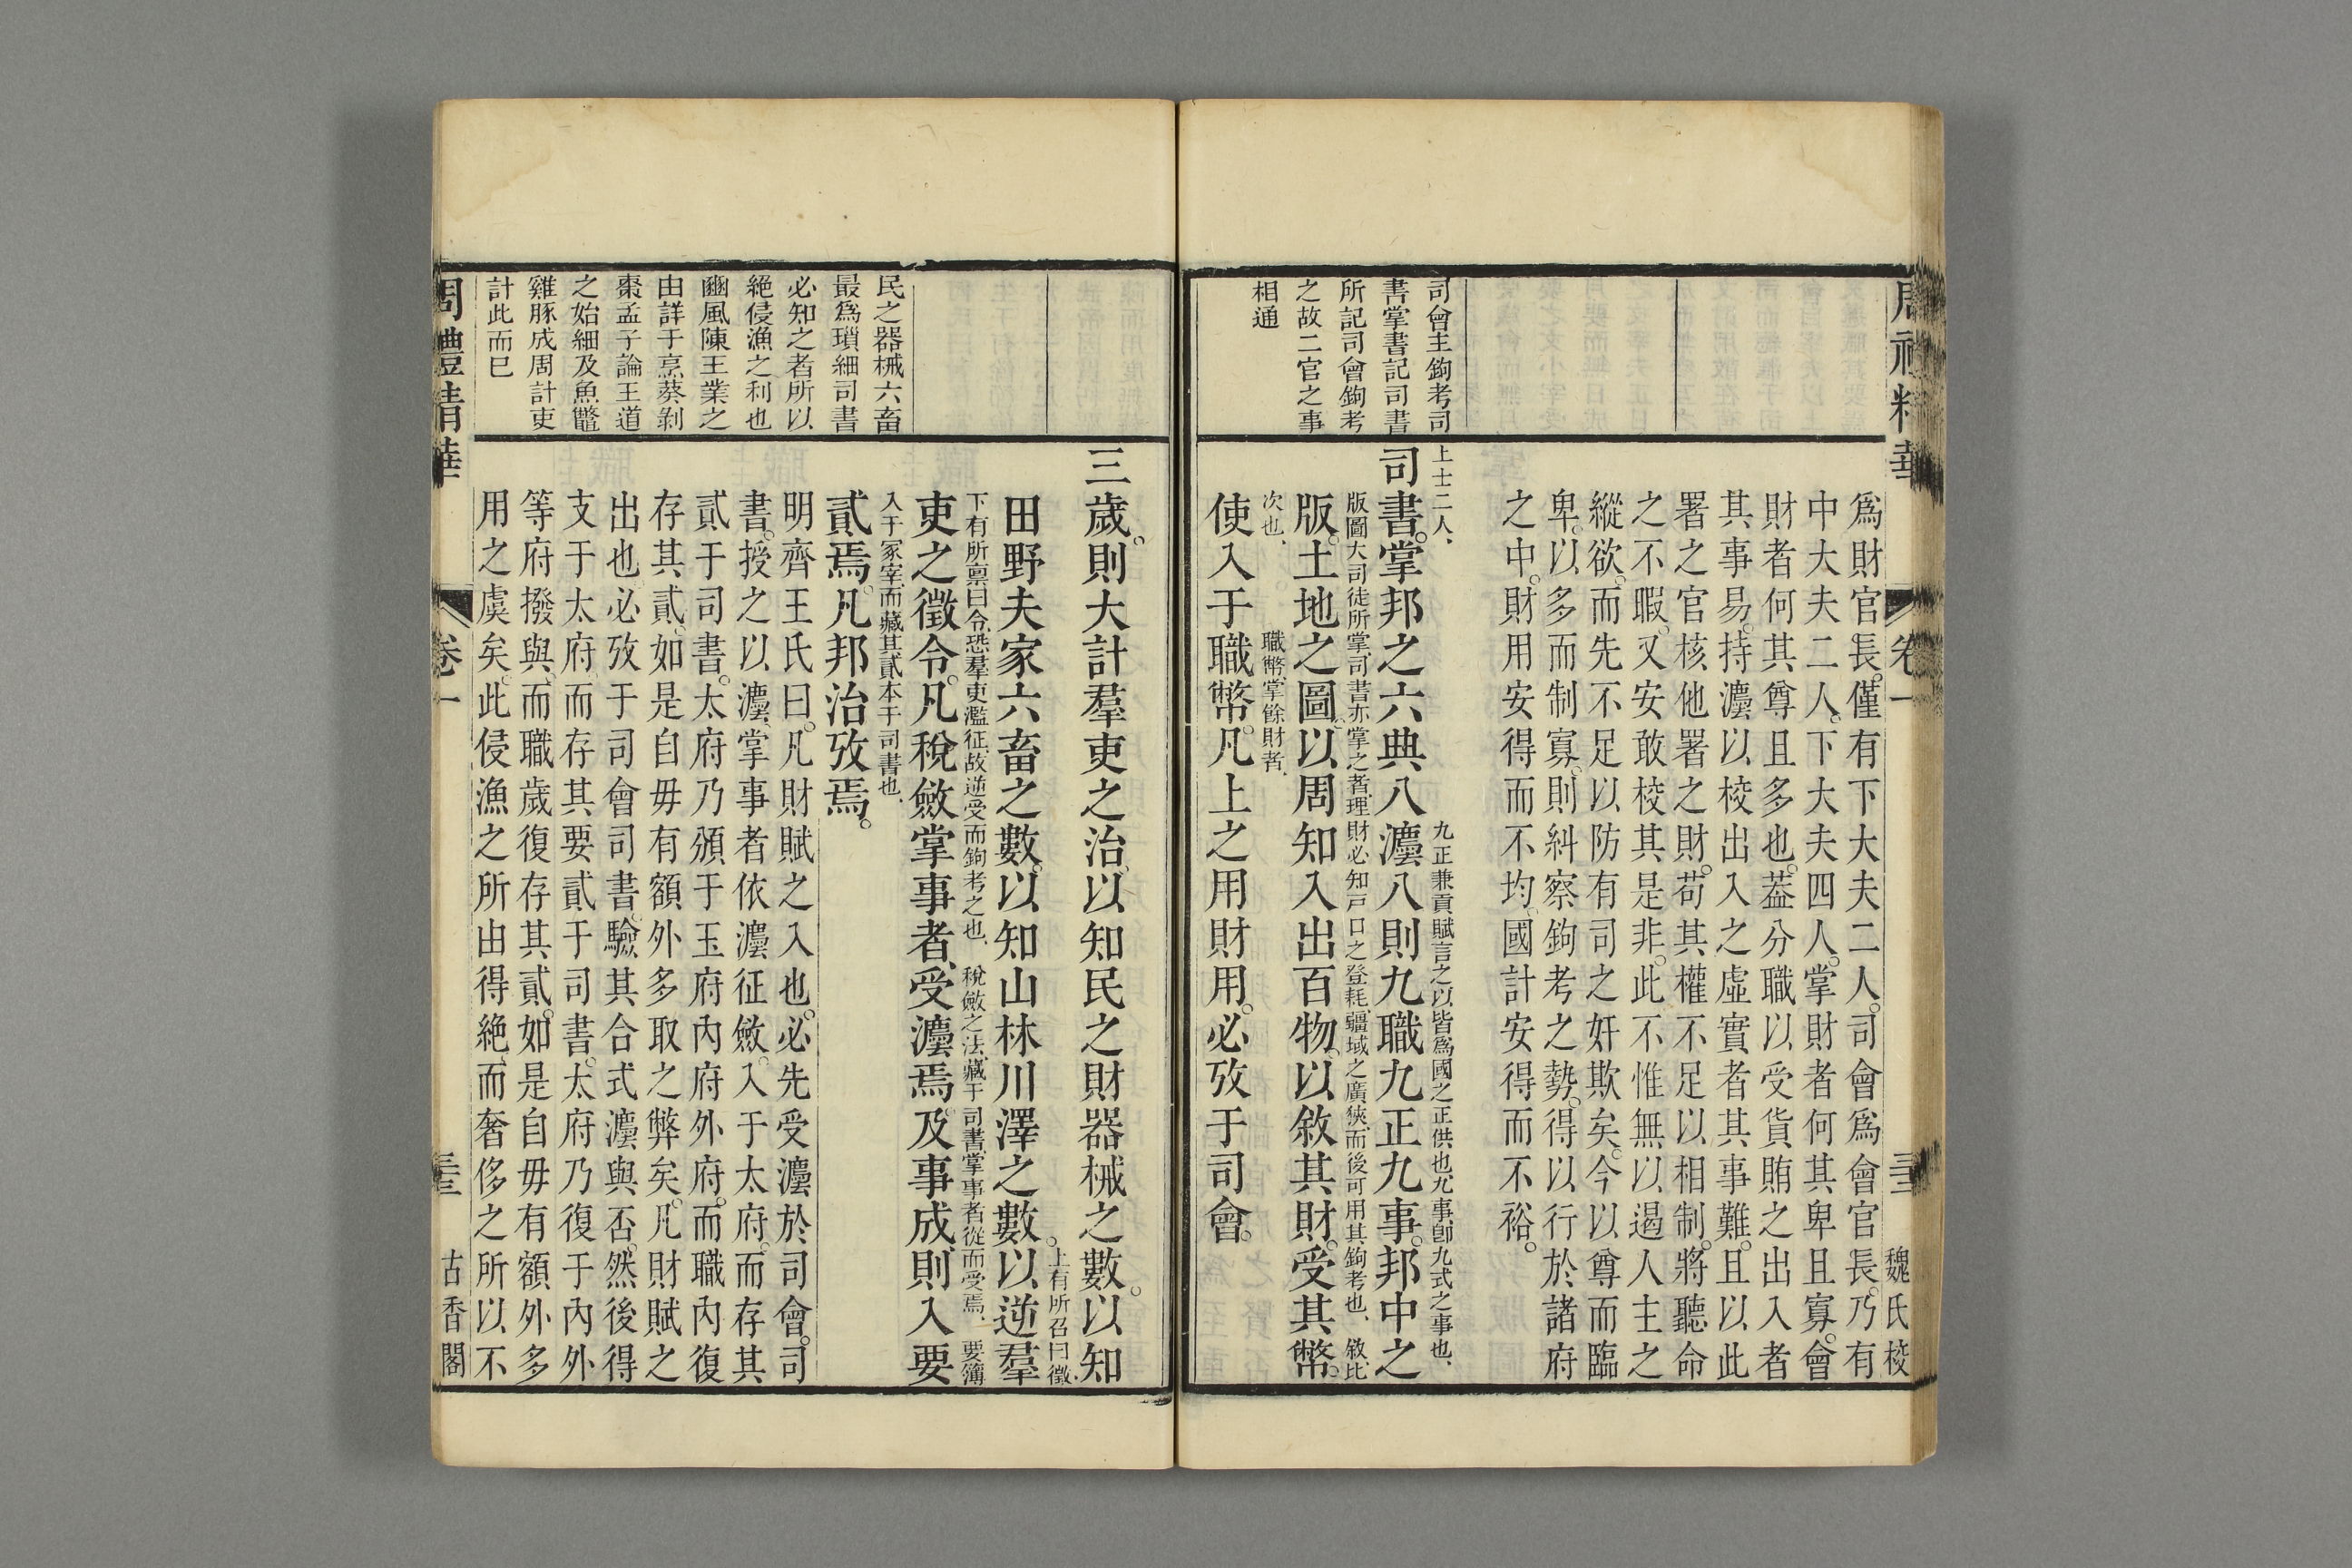 司會主鉤考司
書掌書記司書
所記司會鉤考
之故二官之事
相通
爲財官長。僅有下大夫二人。司會爲會官長。乃有
中大夫二人。下大夫四人。掌財者何其卑且寡。會
財者何其尊且多也。葢分職以受貨賄之出入者
其事易。持灋以校出入之虛實者其事難。且以此
署之官核他署之財。苟其權不足以相制。將聽命
之不暇。又安敢校其是非。此不惟無以遏人主之
縱欲。而先不足以防有司之奸欺矣。今以尊而臨
卑。以多而制寡。則糾察鉤考之勢。得以行於諸府
之中。財用安得而不均。國計安得而不裕。
上士二人、
司書。掌邦之六典八灋八則九職九正九事。邦中之
九正兼貢賦言之以皆爲國之正供也九事卽九式之事也、
版。土地之圖。以周知入出百物。以敘其財。受其幣。
版圖大司徒所掌、司書亦掌之者、理財必知戸口之登耗、疆域之廣狹、而後可用其鉤考也、敘比
次也、
職幣、掌餘財者、
使入于職幣。凡上之用財用。必攷于司會。
周禮精華
卷一
魏氏校
民之器械六畜
最爲瑣細司書
必知之者所以
絕侵漁之利也
豳風陳王業之
由詳于烹葵剝
棗孟子論王道
之始細及魚鼈
雞豚成周計吏
計此而已
三歲。則大計羣吏之治。以知民之財器械之數。以知
田野夫家六畜之數。以知山林川澤之數。以逆羣
上有所召曰徵、
下有所稟曰令、恐羣吏濫征、故逆受而鉤考之也、
吏之徵令。凡稅斂掌事者、受灋焉。及事成則入要
稅斂之法、藏于司書、掌事者從而受焉、要簿
入于冢宰、而藏其貳本于司書也、
貳焉。凡邦治攷焉。
明齊王氏曰。凡財賦之入也。必先受灋於司會。司
書。授之以灋、掌事者依灋征斂。入于太府。而存其
貳于司書。太府乃頒于玉府內府外府。而職內復
存其貳。如是自毋有額外多取之弊矣。凡財賦之
出也必攷于司會司書。驗其合式灋與否。然後得
支于太府、而存其要貳于司書。太府乃復于內外
等府撥與、而職歲復存其貳。如是自毋有額外多
用之虞矣。此侵漁之所由得絕、而奢侈之所以不
周禮精華
卷一
古香閣